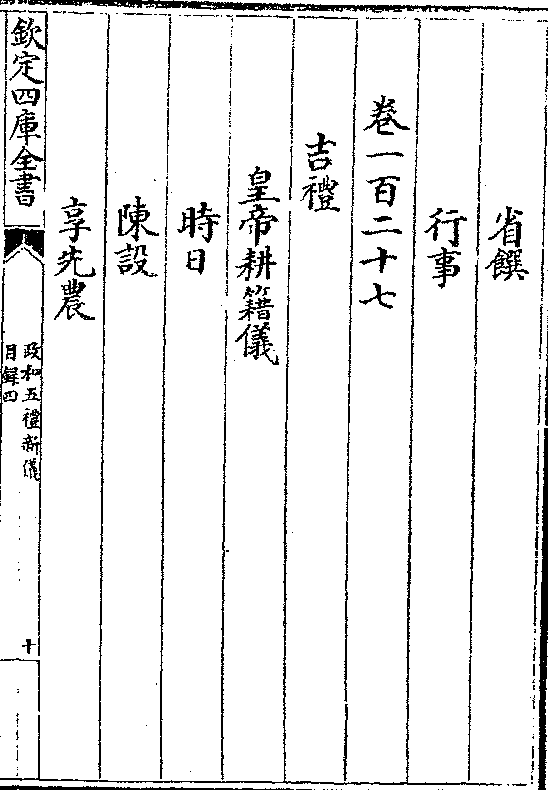 省饌
行事
卷一百二十七
吉禮
皇帝耕籍儀
時日
陳設
享先農
欽定四庫全書
政和五禮新儀
目録四
十